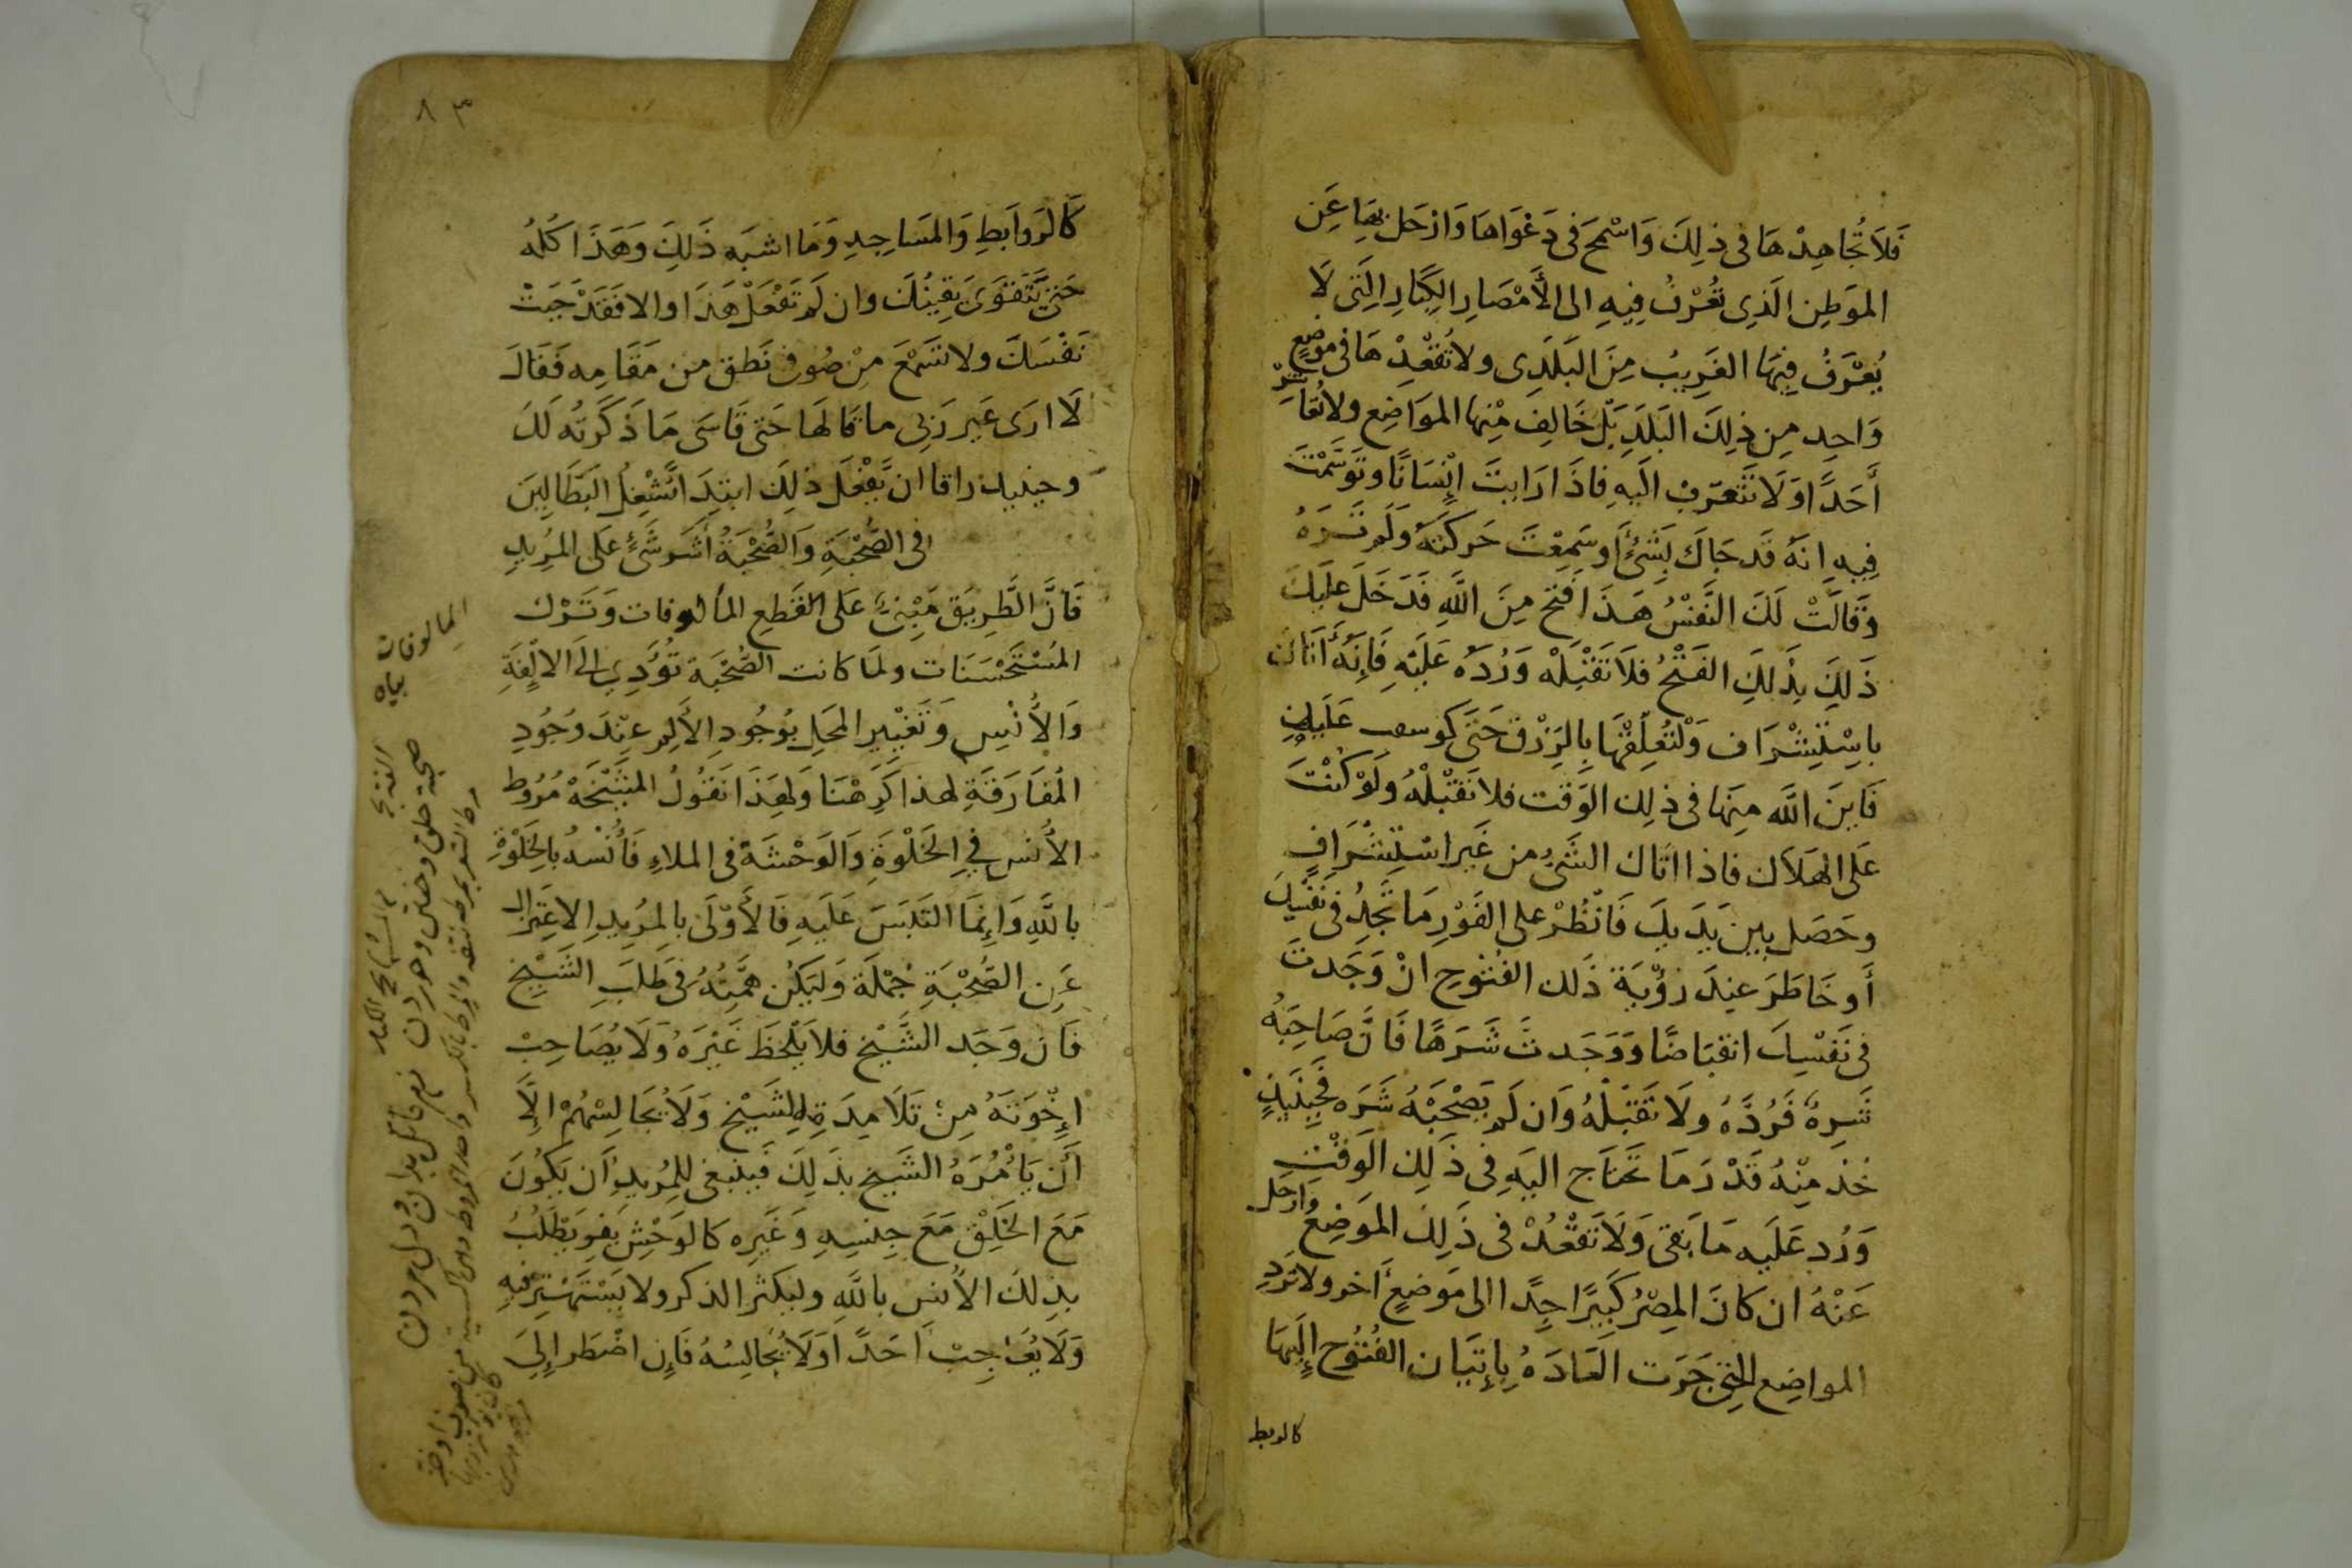 فَلَا تُجَاهِدْهَا فى ذلِكَ وَاسْمَحْ فى دَعْوَاهَا وَارْحَل بِهَا عَنِ
الموَطِن الَذِى تُعْرَفُ فِيهِ الى الأَمْصَارِ الكِبَارِ الَتِى لَا
يُعْرَفُ فِيهَا الغَرِيبُ مِنَ البَلَدِى ولا تُقْعِدْهَا فى موضِعٍ
وَاحِد مِن ذلِكَ البَلَدِ بَلْ خَالِفْ مِنْها الموَاضِع ولا تُعَاشِرْ
أَحَدًا وَلَا تَتَعَرَّف الَيه فاِذَا رَايتَ اِنْسَانًا وتَوَسَّمْتَ
فِيه انَهُ قَد جَاكَ بِشَىْءٍ اوسَمِعْتَ حَركَتَهُ وَلَم تَرَهُ
وَقَالَتْ لَكَ النَّفْسُ هَذَا فتح مِنَ اللَّهِ قَد دَخَلَ عَلَيكَ
ذَلِكَ بِذَلِكِ الفَتْحُ فلَا تَقْبَلْه وَرُدَهُ عَلَيْهِ فَاِنَهُ أَتَاكَ
بِاسْتِشْرَاف وَلْتُعَلِقْهَا بِالرِزْقِ حَتَى كَوسعت عَلَيكِ
فَاينَ اللَّه مِنهَا فى ذلِك الوَقت فلا تَقْبَلْهُ وَلَوْ كُنْتَ
عَلَى الهَلَاك فاذا اتَاك الشَىْ من غَير اسْتِشْرَافٍ
وحَصَل بين يَدَيكَ فَانْظُرْ على الفَوْرِ مَا تَجِدُ فى نَفْسِكَ
أَو خَاطَرَ عِندَ رُؤْيَة ذَلك الفُتُوحِ انْ وَجَدتَ
فى نَفْسِكَ انقبَاضًا وَوَجَدتَ شَرَهًا فَانَّ صَاحِبَهُ
شَرِهٌ فَرُدَّهُ ولَا تَقْبَلْهُ وَان لَم يَصْحَبْهُ شَرَه فَحِينَئِذٍ
خُذ مِنْهُ قَدْرَ مَا تَحتَاج اليَهِ فى ذَلِك الوَقْتِ
وَرُد عَلَيه مَا بَقى وَلَا تَقْعُدْ فى ذَلِكَ الموَضِعُ وَارحَل
عَنْهُ ان كَانَ المِصْرُ كَبِيرًا جِدًّا الى مَوضِعٍ آخر ولا تَرِدِ
المواضِع التى جَرَت العَادَهُ بِاِتيَان الفُتُوح اِلَيهَا
كالربط
٨٣
كَالرَوابَطِ وَالمَسَاجِدِ وَمَا اشبَه ذَلِكَ وَهَذَا كُلهُ
حَتىَّ يَتَقَوَىَ يَقِينُكَ وان لَم تَفْعَلْ هَذَا والا فَقَدْ جَبَتْ
نَفْسَكَ ولا تَسْمَعْ مِنْ صُوفى نَطق من مَقَامِه فَقَالَ
لَا ارَى غَير رَبى ما قَالَهَا حَتى قَاسَى مَا ذَكَرتُه لَكَ
وحينيذ راقا ان يَفْعَلَ ذلِكَ ابتِدَا نَشْغِلُ البَطَالِينَ
فى الصُّحْبَةِ وَالصُّحْبَةُ أَشَر شَىْءٍ عَلَى المرُيدِ
فَانَّ الطَّرِيَق مَبْنِىٌ عَلَى القَطِع المألوفات وَتَرْك
المُسْتَحْسَنَات ولمَا كانت الصُّحْبَة تُؤَدِى اِلَى الالْفَةِ
وَالأُنْسِ وَتَغْيِير المحَلِ بوُجُودِ الأَلِم عِنْدَ وُجُودِ
الُمفَارَقَةِ لهذا كَرِهْنَا وَلِهَذَا نَقُولُ المشَيْخَهْ مُرُوط
الأُنس فِي الخَلْوَةِ وَالوَحْشَة فى الملاءِ فَأُنْسُهُ بِالخَلْوَةِ
باللَّهِ وَاِنَّمَا التَبَسَ عَلَيهِ فَالأَوْلَى بالمِريدِ الاعِتَزال
عَنِ الصُّحْبَةِ جُمْلَة وَليَكُن هِمَّتُهُ فى طَلَبِ الشَيْخِ
فَان وَجَد الشَّيْخ فلا يَلْحَظ غَيْرَهُ وَلَا يُصَاحِبْ
اِخْوَتَهُ مِنْ تَلَامِذَةِ الشَيْخ وَلَا يُجَالِسْهُمْ اِلَّا
أَن يَأمُرَهُ الشَيخ بذَلِكَ فَينبَغى للِمُريدِ اَن يَكُونَ
مَعَ الخَلِقْ مَعَ جِنسِهِ وَغَيرِه كَالوَحْشِ يَفِر يَطْلُبُ
بذلكَ الاُنس باللَّهِ وليكثر الذكر ولا يَسْتَهْتِر فيهِ
وَلَا يُعَاجِبْ اَحَدًا وَلَا يُجَالِسُهُ فَاِن اضْطَر اِلىَ
المالوفات